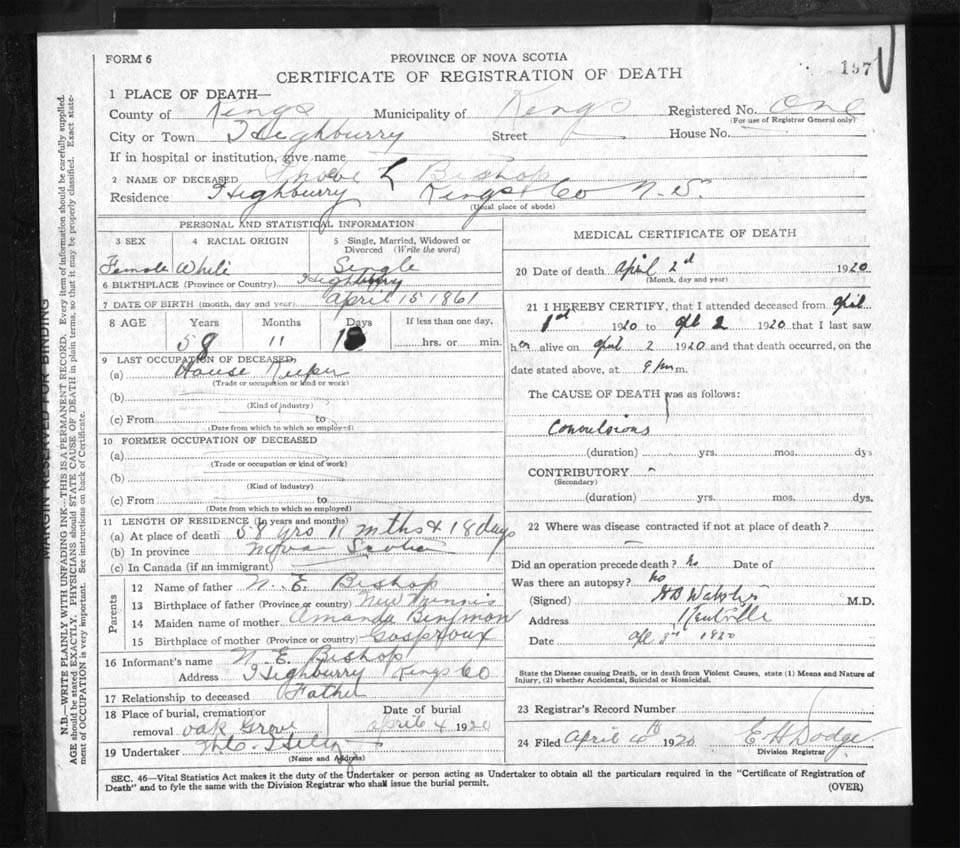 FORM 6
PROVINCE OF NOVA SCOTIA
197
CERTIFICATE OF REGISTRATION OF DEATH
1 PLACE OF DEATH—
County of Kings Municipality of Kings Registered No. One
(For use of Registrar General only)
City or Town Highburry Street House No.
If in hospital or institution, give name
2 NAME OF DECEASED Phoebe L Bishop
Residence Highburry Kings Co N.S.
(Usual place of abode)
PERSONAL AND STATISTICAL INFORMATION
3 SEX 4 RACIAL ORIGIN 5 Single, Married, Widowed or Divorced (Write the word)
Female White Single
6 BIRTHPLACE (Province or Country) Highburry
7 DATE OF BIRTH (month, day and year) April 15 1861
8 AGE Years Months Days If less than one day,
58 11 18 hrs. or min.
9 LAST OCCUPATION OF DECEASED,
(a) House Keeper
(Trade or occupation or kind or work)
(b)
(Kind of industry)
(c) From to
(Date from which to which so employed)
10 FORMER OCCUPATION OF DECEASED
(a)
(Trade or occupation or kind of work)
(b)
(Kind of industry)
(c) From to
(Date from which to which so employed)
11 LENGTH OF RESIDENCE (In years and months)
(a) At place of death 58 yrs 11 mths & 18 days
(b) In province Nova Scotia
(c) In Canada (if an immigrant)
Parents
12 Name of father N. E. Bishop
13 Birthplace of father (Province or country) New Minnis
14 Maiden name of mother Amanda Benjmon
15 Birthplace of mother (Province or country) Gasproux
16 Informant's name N. E. Bishop
Address Highburry Kings Co
17 Relationship to deceased Father
18 Place of burial, cremation or removal Oak Grove
Date of burial April 4 1920
19 Undertaker
(Name and Address)
MEDICAL CERTIFICATE OF DEATH
20 Date of death April 2d 1920
(Month, day and year)
21 I HEREBY CERTIFY, that I attended deceased from April
1st 1920 to Apl 2 1920 that I last saw
her alive on April 2 1920 and that death occurred, on the
date stated above, at 9 pm m.
The CAUSE OF DEATH was as follows:
Convulsions
(duration) yrs. mos. dys
CONTRIBUTORY
(Secondary)
(duration) yrs. mos. dys.
22 Where was disease contracted if not at place of death?
Did an operation precede death? No Date of
Was there an autopsy? No
(Signed) H B Webster M.D.
Address Kentville
Date Apl 3rd 1920
State the Disease causing Death, or in death from Violent Causes, state (1) Means and Nature of
Injury, (2) whether Accidental, Suicidal or Homicidal.
23 Registrar's Record Number
24 Filed April 4th 1920 E H Dodge
Division Registrar
SEC. 46—Vital Statistics Act makes it the duty of the Undertaker or person acting as Undertaker to obtain all the particulars required in the "Certificate of Registration of
Death" and to fyle the same with the Division Registrar who shall issue the burial permit. (OVER)
MARGIN RESERVED FOR BINDING
N.B.—WRITE PLAINLY WITH UNFADING INK—THIS IS A PERMANENT RECORD. Every item of information should be carefully supplied.
AGE should be stated EXACTLY. PHYSICIANS should STATE CAUSE OF DEATH in plain terms, so that it may be properly classified. Exact state-
ment of OCCUPATION is very important. See instructions on back of Certificate.